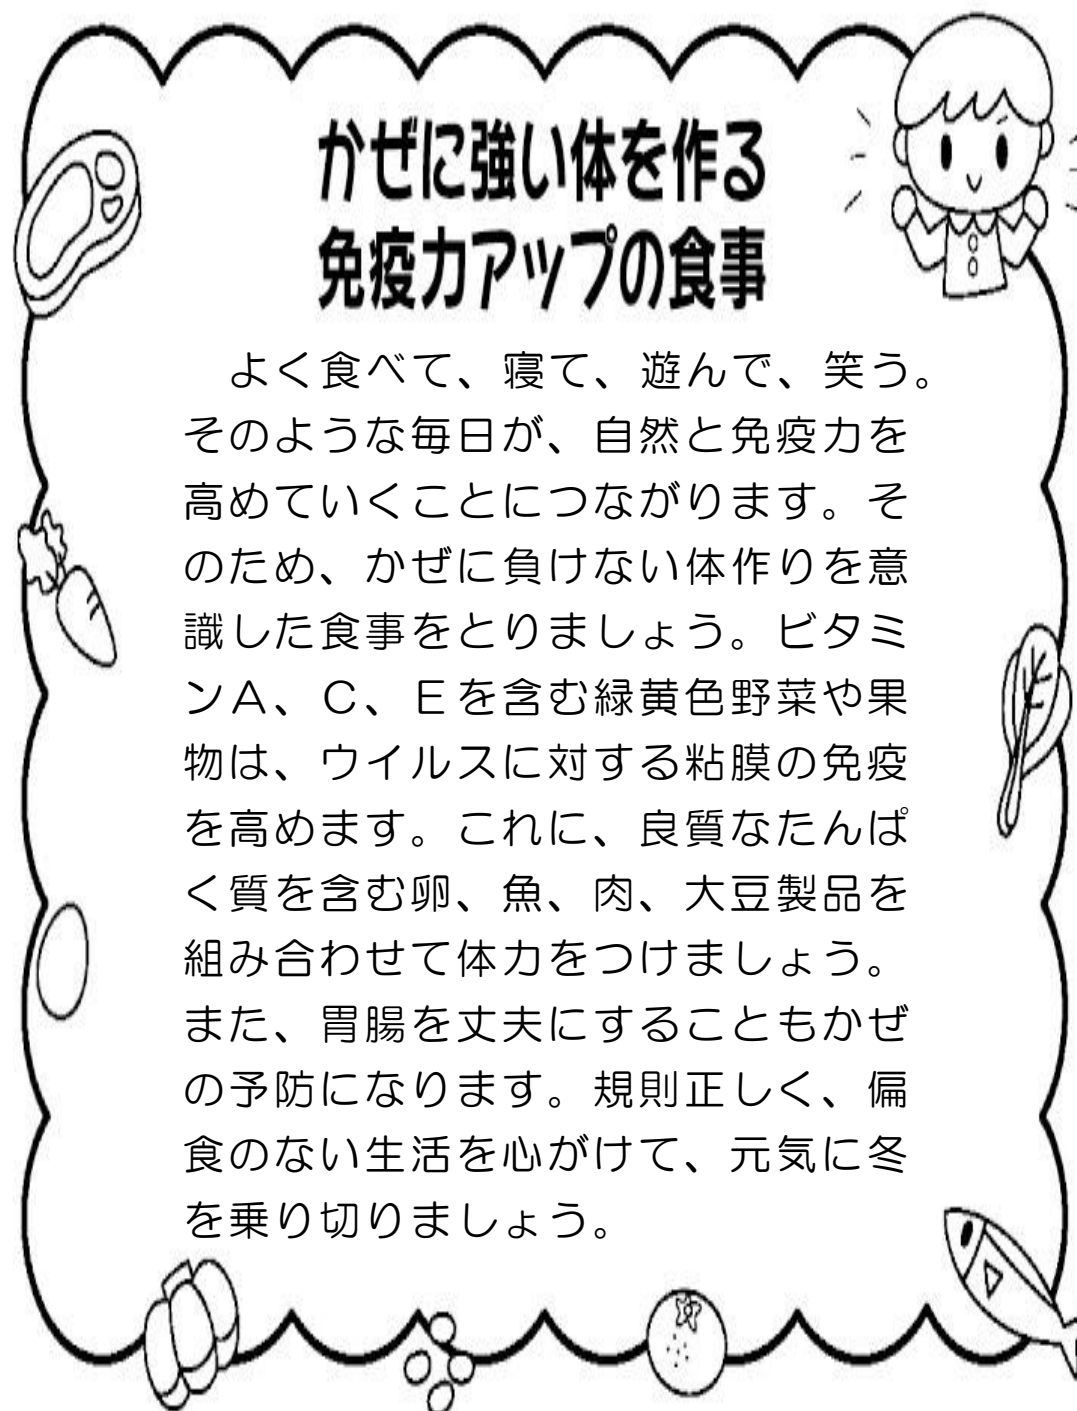 かぜに強い体を作る
免疫力アップの食事
　よく食べて、寝て、遊んで、笑う。
そのような毎日が、自然と免疫力を
高めていくことにつながります。そ
のため、かぜに負けない体作りを意
識した食事をとりましょう。ビタミ
ンA、C、Eを含む緑黄色野菜や果
物は、ウイルスに対する粘膜の免疫
を高めます。これに、良質なたんぱ
く質を含む卵、魚、肉、大豆製品を
組み合わせて体力をつけましょう。
また、胃腸を丈夫にすることもかぜ
の予防になります。規則正しく、偏
食のない生活を心がけて、元気に冬
を乗り切りましょう。